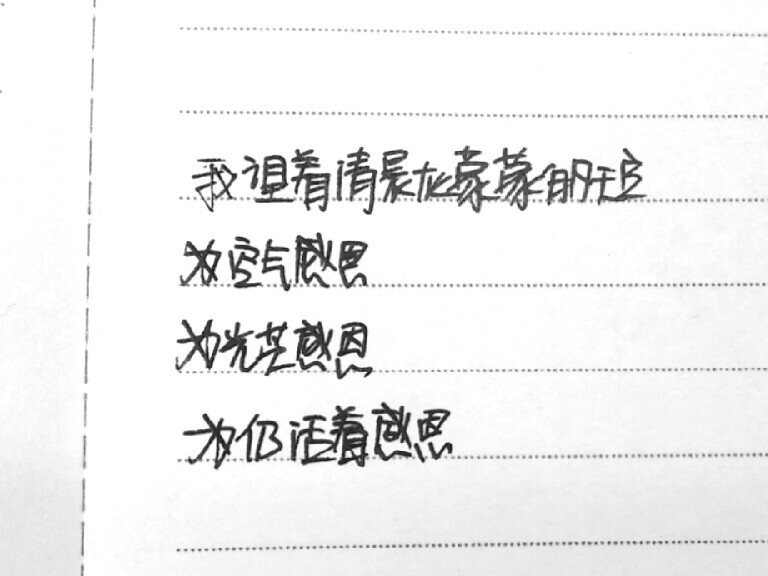 我望着清晨灰蒙蒙的天空
为空气感恩
为光芒感恩
为仍活着感恩